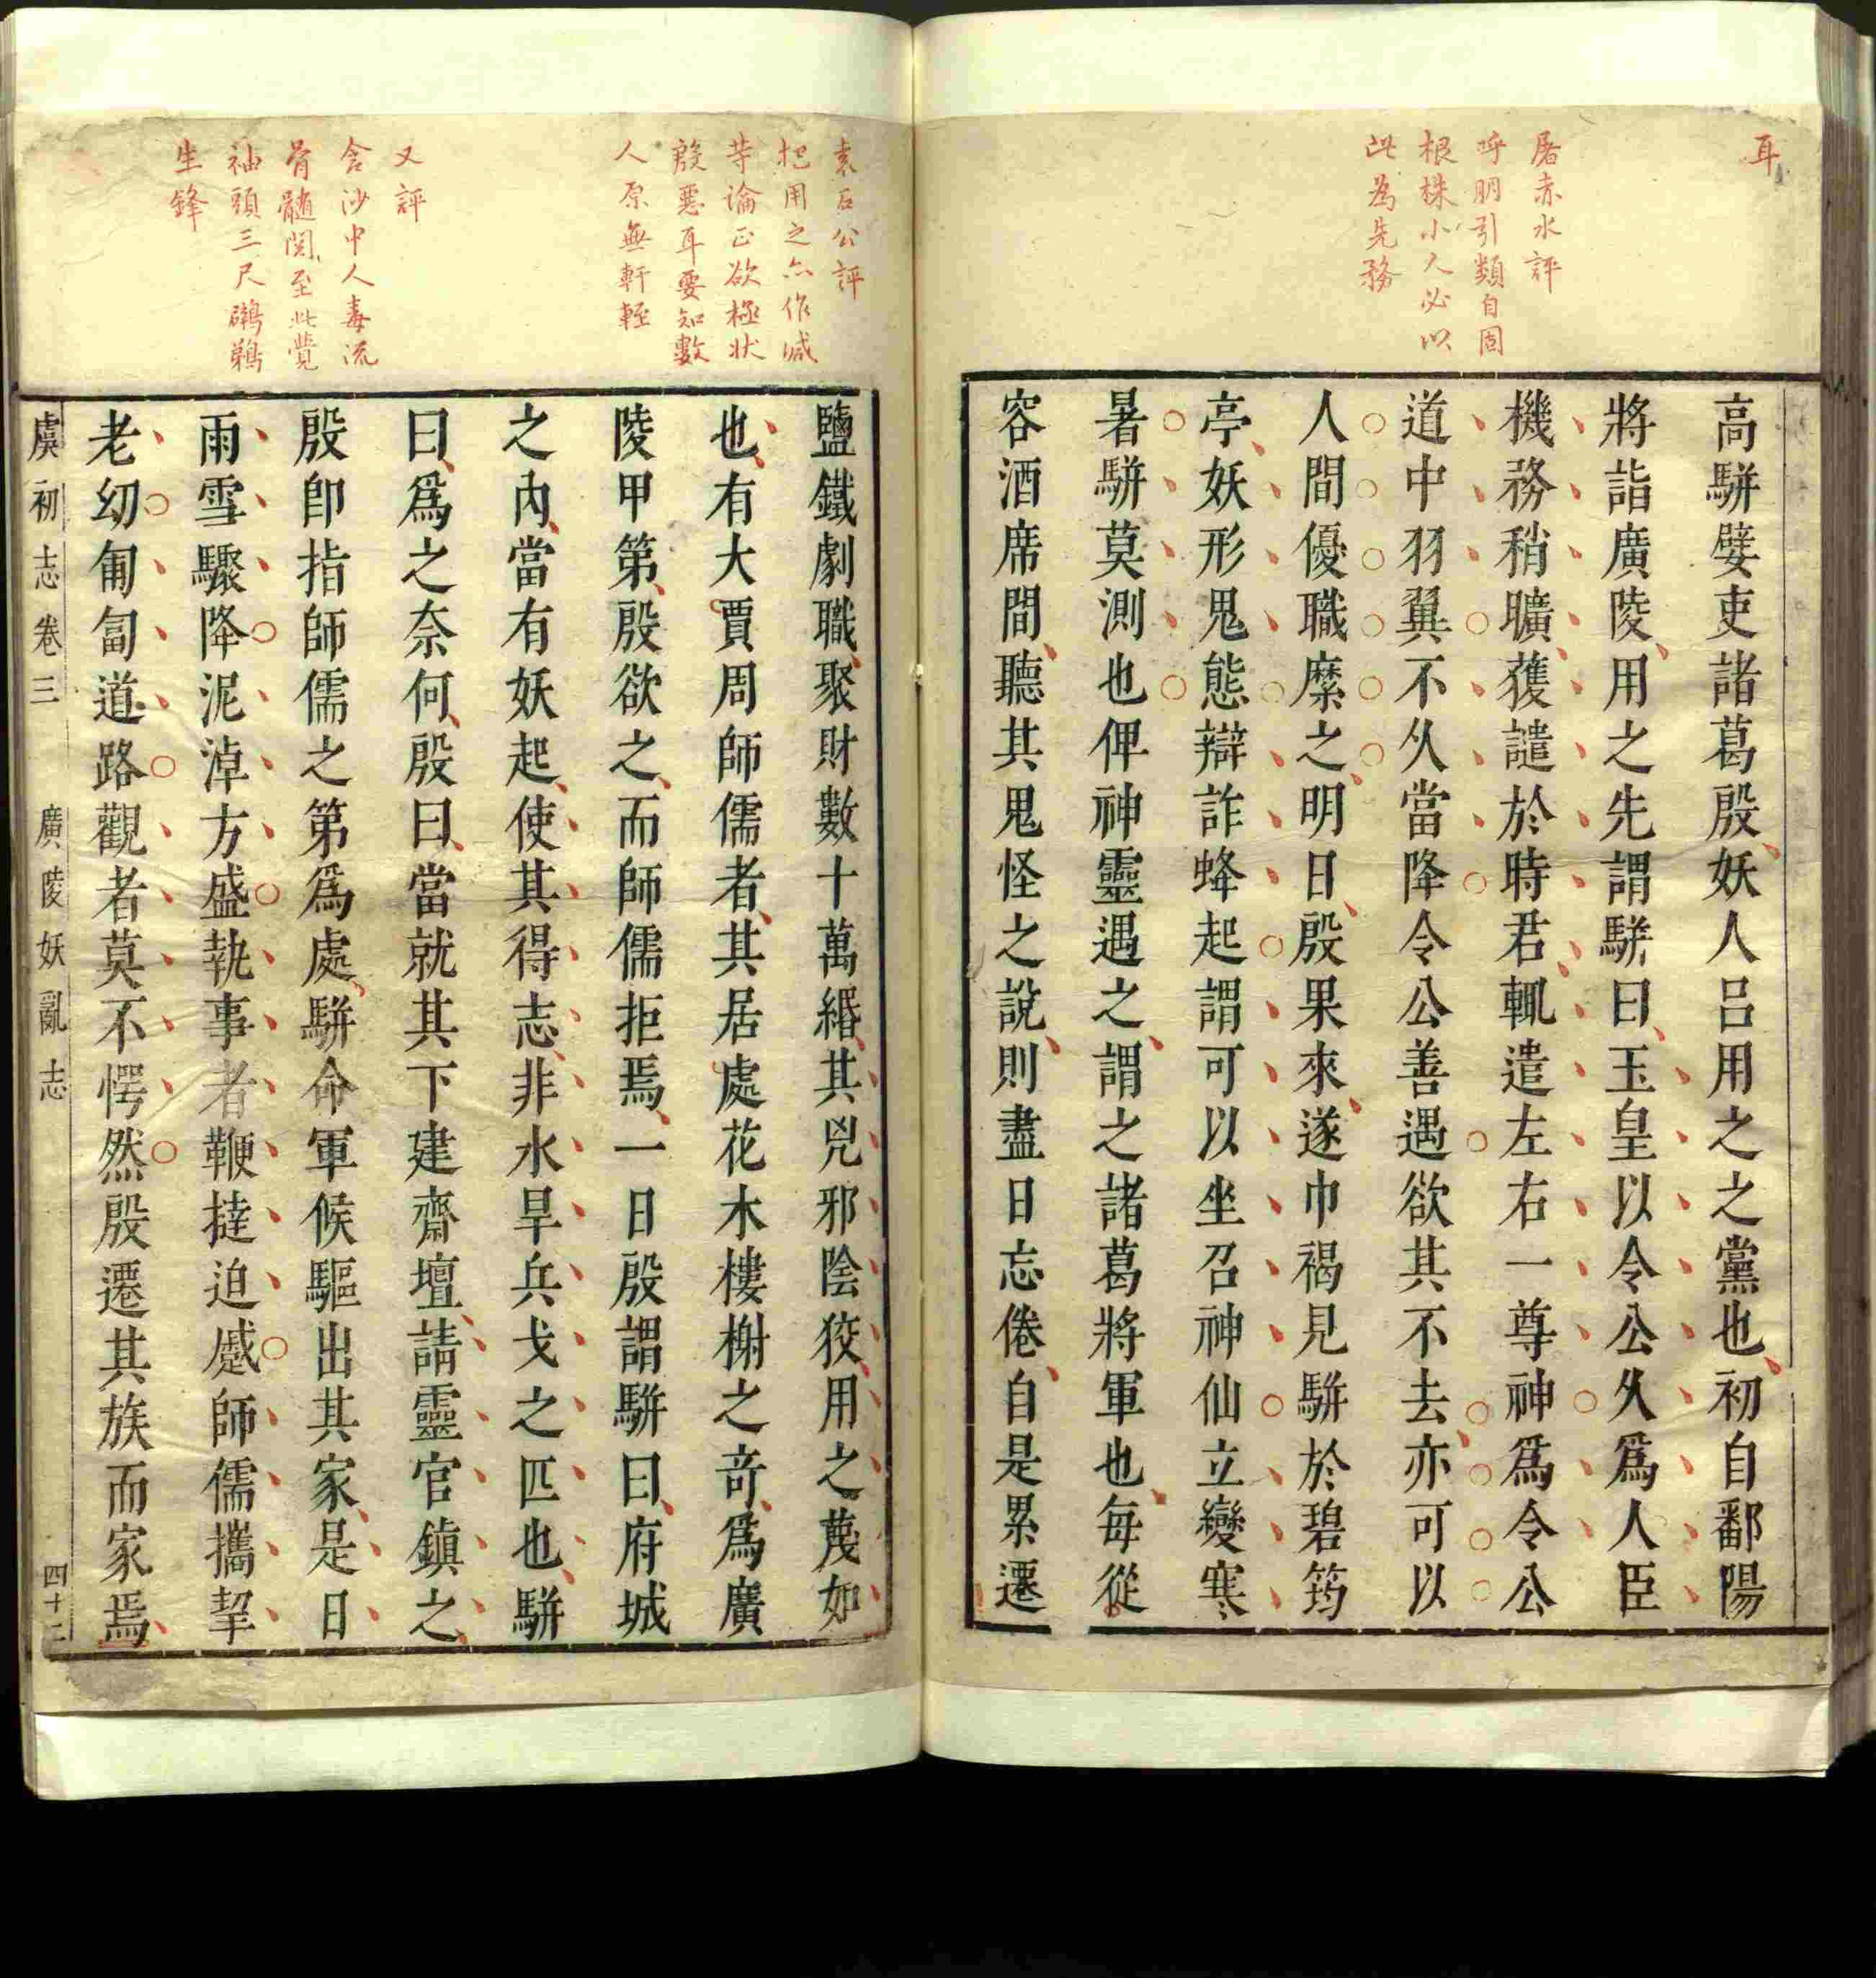 耳
屠赤水評
呼朋引類自固
根株小人必以
此為先務
高駢嬖吏諸葛殷妖人吕用之之黨也初自鄱陽
將詣廣陵用之先謂駢曰玉皇以令公久爲人臣
機務稍曠獲譴於時君輒遣左右一尊神爲令公
道中羽翼不久當降令公善遇欲其不去亦可以
人間優職縻之明日殷果來遂巾褐見駢於碧筠
亭妖形鬼態辯詐蜂起謂可以坐召神仙立變寒
暑駢莫測也俾神靈遇之謂之諸葛將軍也每從
容酒席間聽其鬼怪之說則盡日忘倦自是累遷
袁石公評
把用之亦作減
等論正欲極狀
殷惡耳要知數
人原無軒輊
又評
含沙中人毒流
骨髄閱至此覺
袖頭三尺鸊鵜
生鋒
鹽鐵劇職聚財數十萬緡其兇邪陰狡用之蔑如
也有大賈周師儒者其居處花木樓榭之奇爲廣
陵甲第殷欲之而師儒拒焉一日殷謂駢曰府城
之內當有妖起使其得志非水旱兵戈之匹也駢
曰爲之奈何殷曰當就其下建齋壇請靈官鎮之
殷卽指師儒之第爲處駢命軍候驅出其家是日
雨雪驟降泥淖方盛執事者鞭撻迫蹙師儒攜挈
老幼匍匐道路觀者莫不愕然殷遷其族而家焉
虞初志卷三 廣陵妖亂志 四十二